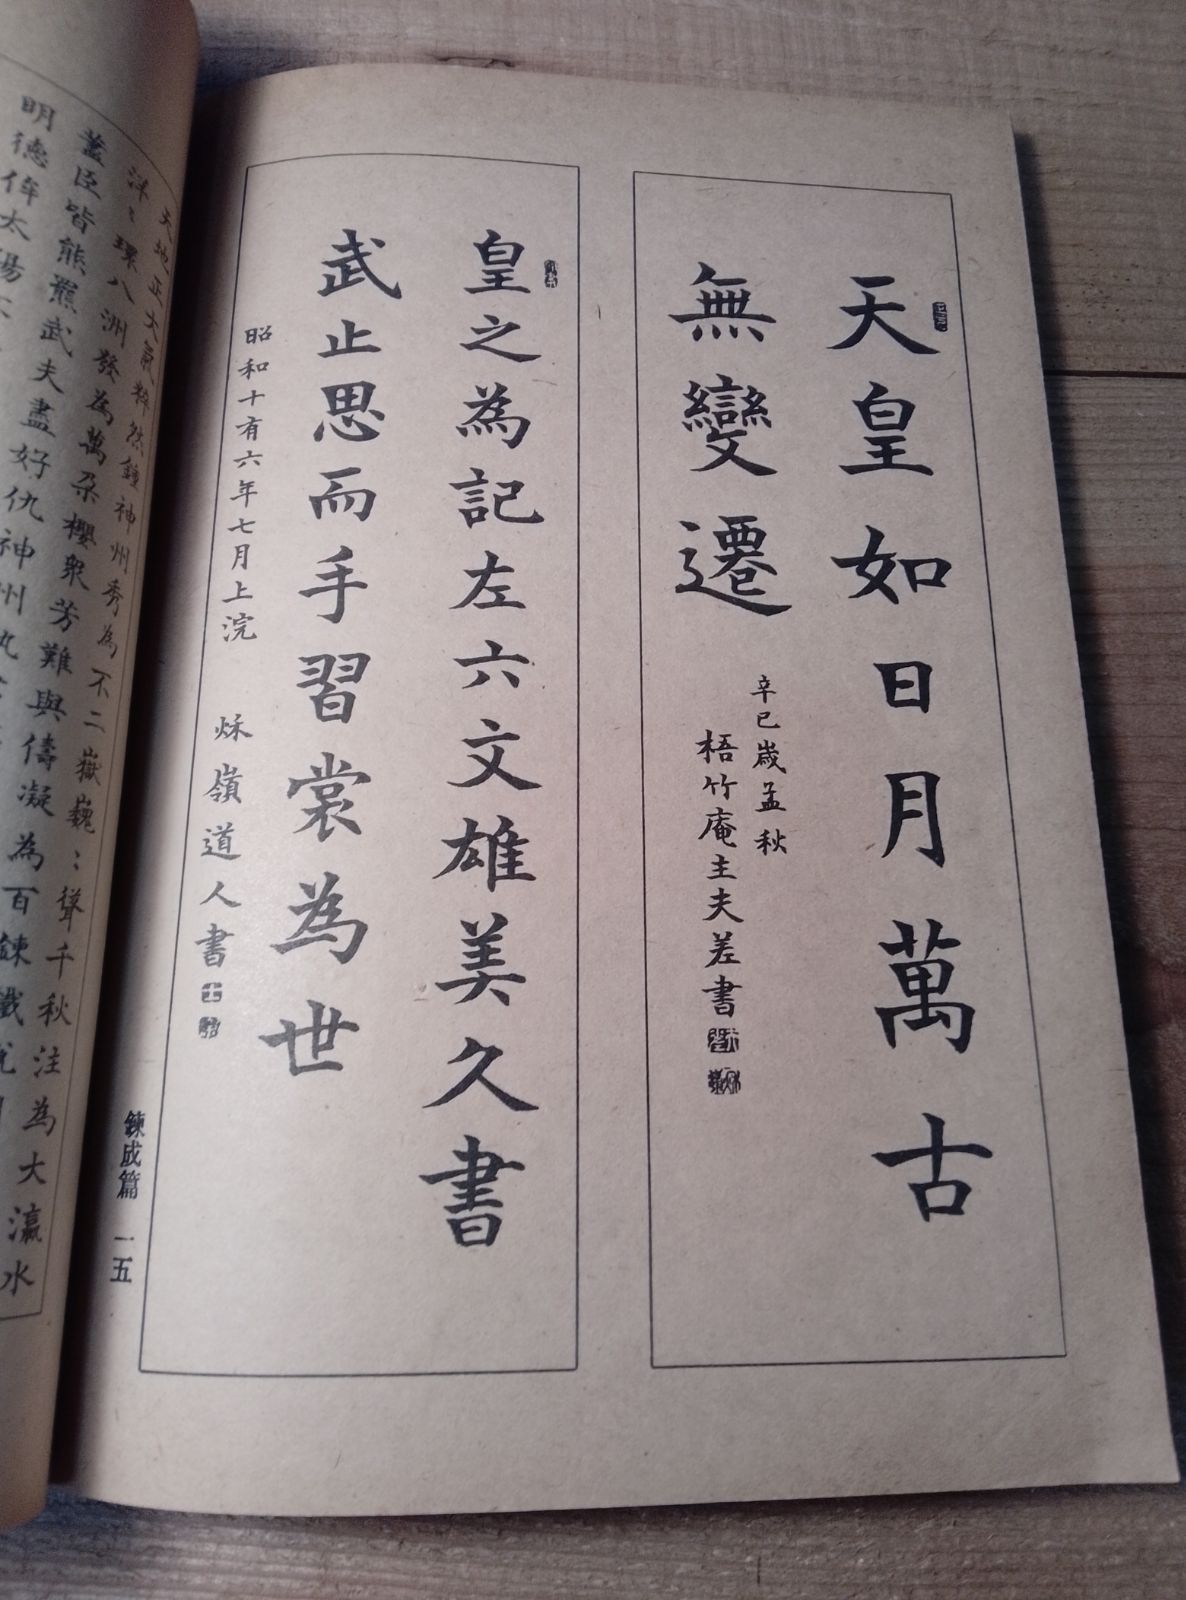 天皇如日月萬古
無變遷
辛巳歳孟秋
梧竹庵主夫差書
皇之為記左六文雄美久書
武止思而手習裳為世
昭和十有六年七月上浣
秌嶺道人書
錬成篇 一五
天地正大氣粹然鍾神州秀為不二嶽巍〻聳千秋注為大瀛水
洋〻環八洲發為萬朶櫻衆芳難與儔凝為百錬鐵
藎臣皆熊羆武夫盡好仇神州
明德侔太陽